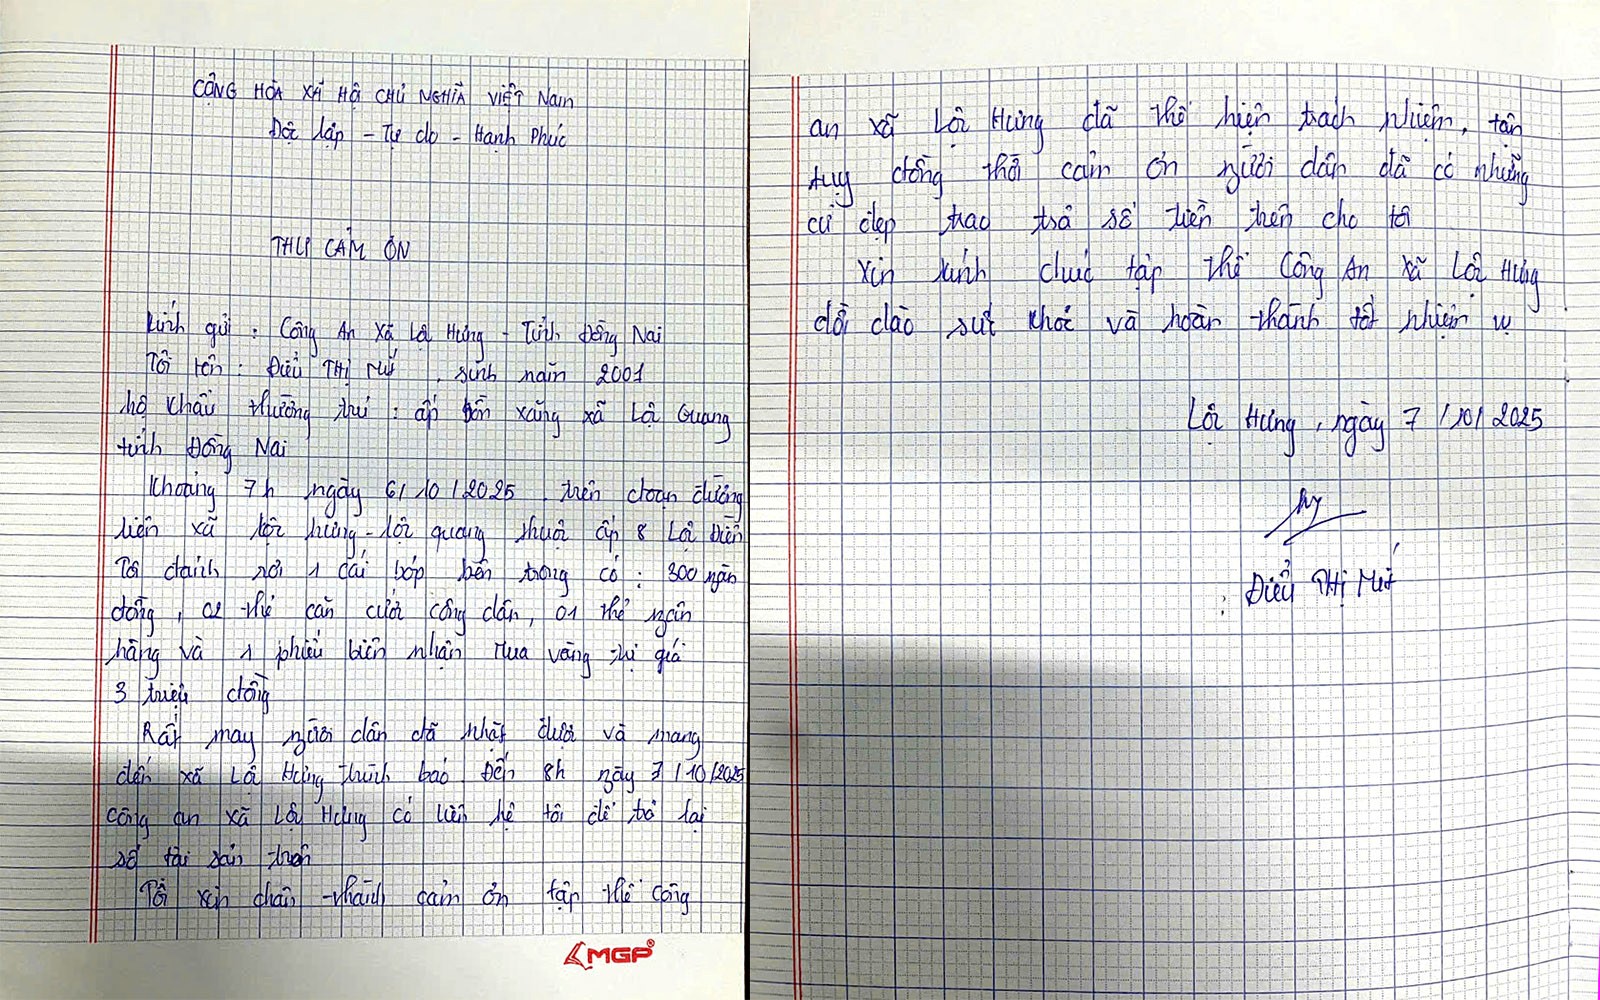 CỘNG HÒA XÃ HỘ CHỦ NGHĨA VIỆT Nam
Độc lập - Tự do - Hạnh Phúc
THƯ CẢM ƠN
Kính gửi : Công An Xã Lộc Hưng - Tỉnh Đồng Nai
Tôi tên : Điểu THị Mứ , sinh năm 2001
hộ khẩu thường trú : ấp bồn xăng xã Lộc Quang
tỉnh Đồng Nai
Khoảng 7h ngày 6/10/2025 . trên đoạn đường
liên xã lộc hưng - lộc quang thuộc ấp 8 Lộc Điền
Tôi đánh rơi 1 cái bóp bên trong có : 300 ngàn
đồng , 02 thẻ căn cước công dân, 01 thẻ ngân
hàng và 1 phiếu biên nhận mua vàng trị giá
3 triệu đồng
Rất may người dân đã nhặt được và mang
đến xã Lộc Hưng trình báo. Đến 8h ngày 7/10/2025
công an xã Lộc Hưng có liên hệ tôi để trả lại
số tài sản trên
Tôi xin chân thành cảm ơn tập thể công
MGP
an xã Lộc Hưng đã thể hiện trách nhiệm, tận
tụy đồng thời cảm ơn người dân đã có những
cử đẹp trao trả số tiền trên cho tôi
Xin kính chúc tập thể Công An xã Lộc Hưng
dồi dào sức khỏe và hoàn thành tốt nhiệm vụ
Lộc Hưng , ngày 7/10/2025
Điểu THị Mứ